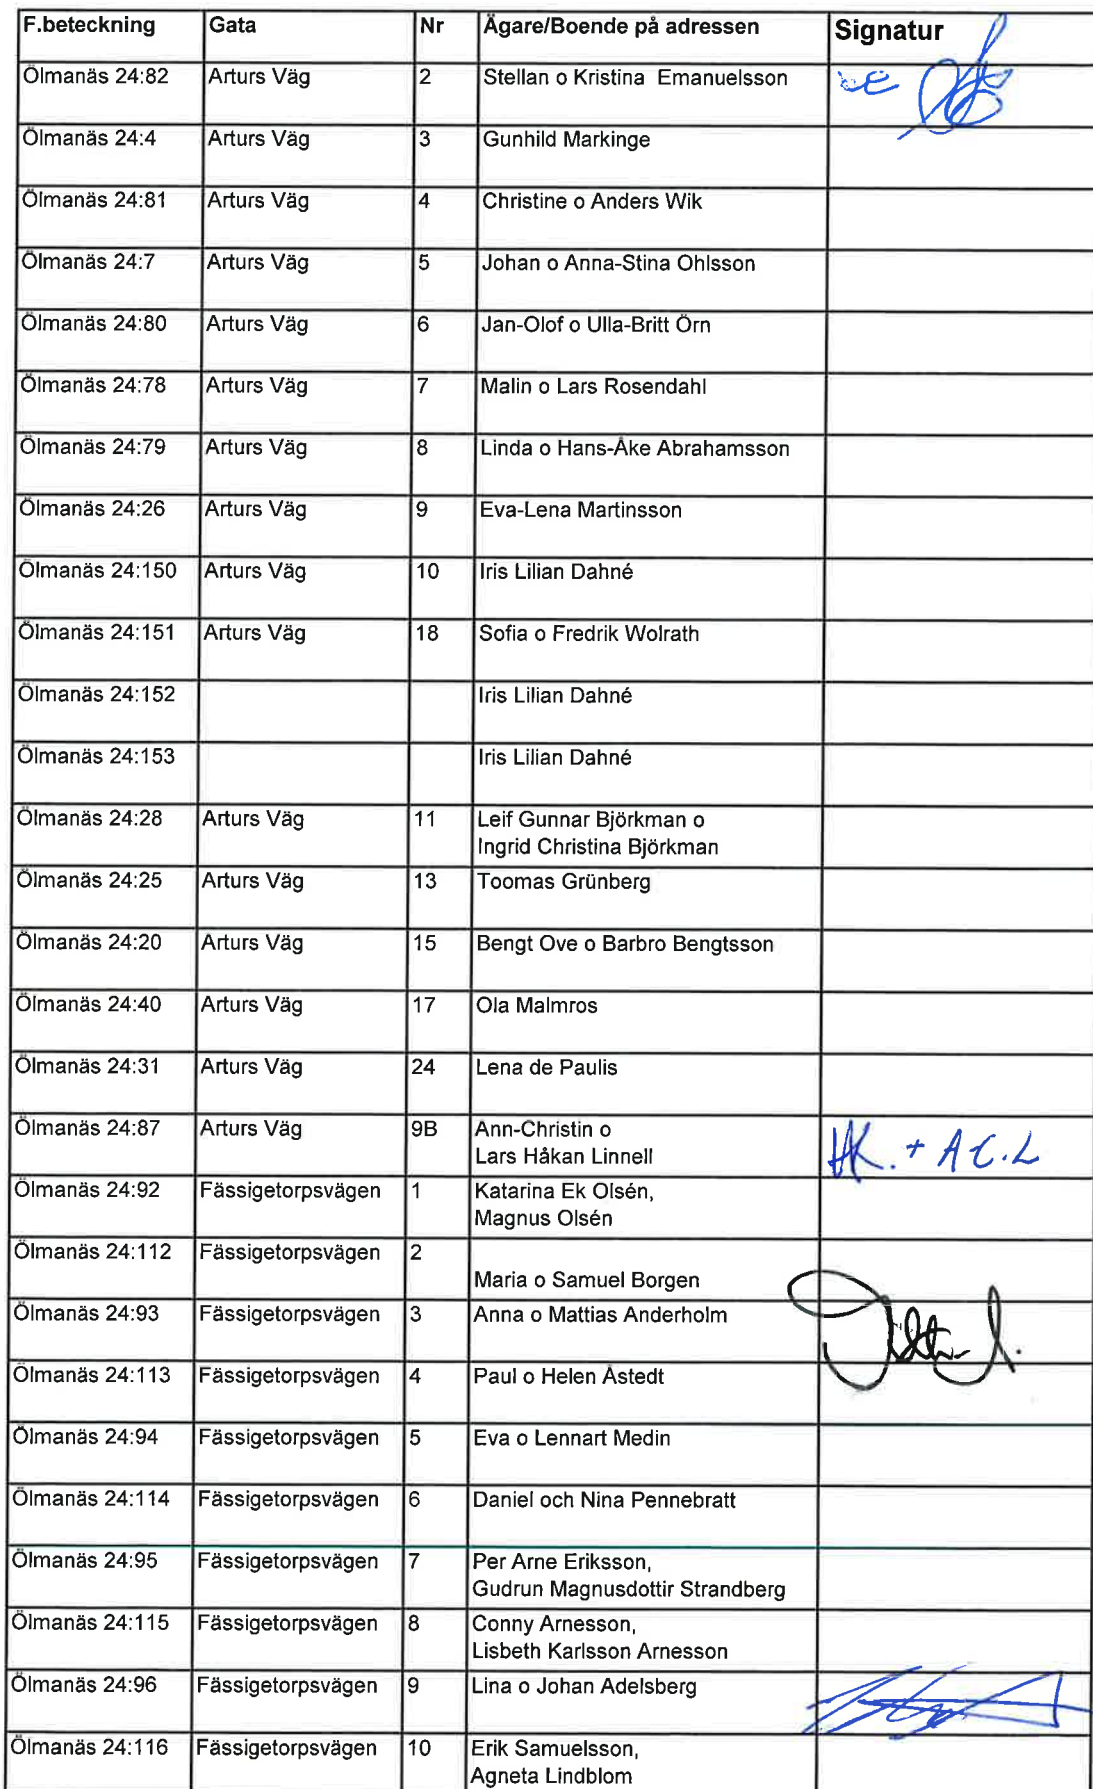 F.beteckning Gata Nr Ägare/Boende på adressen Signatur
Ölmanäs 24:82 Arturs Väg 2 Stellan o Kristina Emanuelsson
Ölmanäs 24:4 Arturs Väg 3 Gunhild Markinge
Ölmanäs 24:81 Arturs Väg 4 Christine o Anders Wik
Ölmanäs 24:7 Arturs Väg 5 Johan o Anna-Stina Ohlsson
Ölmanäs 24:80 Arturs Väg 6 Jan-Olof o Ulla-Britt Örn
Ölmanäs 24:78 Arturs Väg 7 Malin o Lars Rosendahl
Ölmanäs 24:79 Arturs Väg 8 Linda o Hans-Åke Abrahamsson
Ölmanäs 24:26 Arturs Väg 9 Eva-Lena Martinsson
Ölmanäs 24:150 Arturs Väg 10 Iris Lilian Dahné
Ölmanäs 24:151 Arturs Väg 18 Sofia o Fredrik Wolrath
Ölmanäs 24:152 Iris Lilian Dahné
Ölmanäs 24:153 Iris Lilian Dahné
Ölmanäs 24:28 Arturs Väg 11 Leif Gunnar Björkman o
Ingrid Christina Björkman
Ölmanäs 24:25 Arturs Väg 13 Toomas Grünberg
Ölmanäs 24:20 Arturs Väg 15 Bengt Ove o Barbro Bengtsson
Ölmanäs 24:40 Arturs Väg 17 Ola Malmros
Ölmanäs 24:31 Arturs Väg 24 Lena de Paulis
Ölmanäs 24:87 Arturs Väg 9B Ann-Christin o
Lars Håkan Linnell + A.C.L
Ölmanäs 24:92 Fässigetorpsvägen 1 Katarina Ek Olsén,
Magnus Olsén
Ölmanäs 24:112 Fässigetorpsvägen 2
Maria o Samuel Borgen
Ölmanäs 24:93 Fässigetorpsvägen 3 Anna o Mattias Anderholm
Ölmanäs 24:113 Fässigetorpsvägen 4 Paul o Helen Åstedt
Ölmanäs 24:94 Fässigetorpsvägen 5 Eva o Lennart Medin
Ölmanäs 24:114 Fässigetorpsvägen 6 Daniel och Nina Pennebratt
Ölmanäs 24:95 Fässigetorpsvägen 7 Per Arne Eriksson,
Gudrun Magnusdottir Strandberg
Ölmanäs 24:115 Fässigetorpsvägen 8 Conny Arnesson,
Lisbeth Karlsson Arnesson
Ölmanäs 24:96 Fässigetorpsvägen 9 Lina o Johan Adelsberg
Ölmanäs 24:116 Fässigetorpsvägen 10 Erik Samuelsson,
Agneta Lindblom